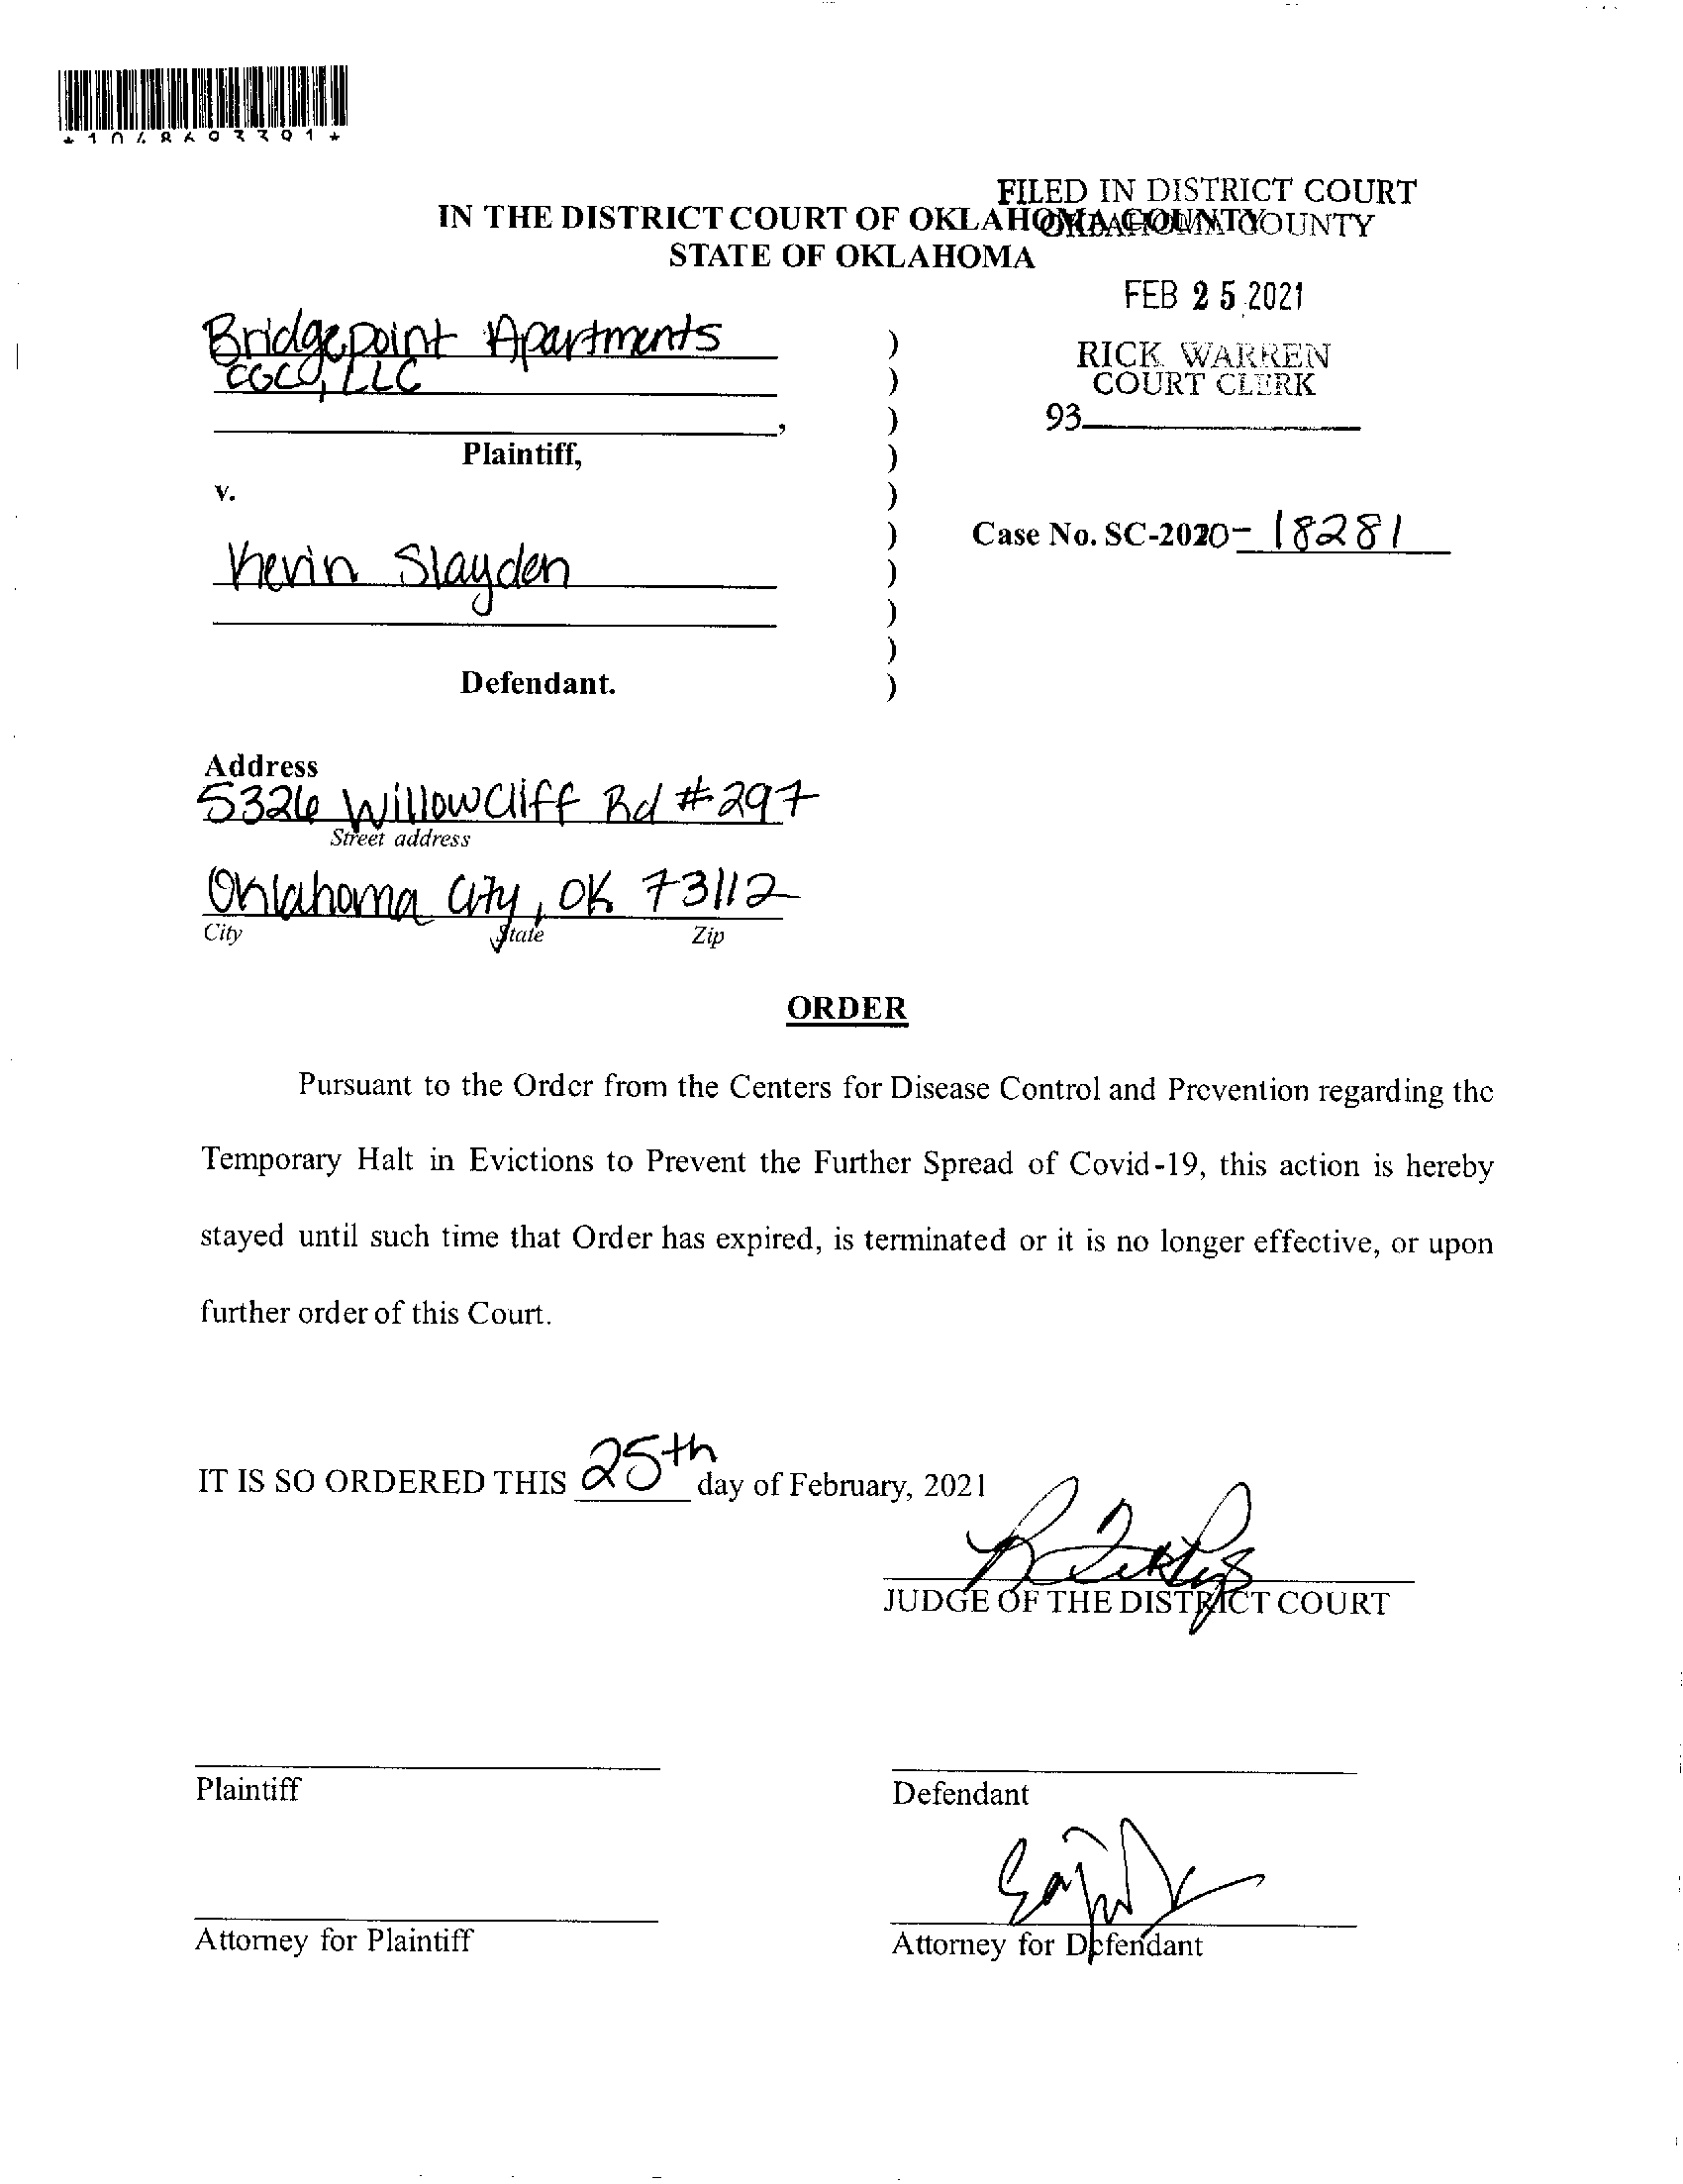 FILED IN DISTRICT COURT
OKLAHOMA COUNTY
IN THE DISTRICT COURT OF OKLAHOMA COUNTY
STATE OF OKLAHOMA
FEB 25 2021
RICK WARREN
COURT CLERK
93
Bridgepoint Apartments
CGCO, LLC
,
Plaintiff,
v.
Case No. SC-2020- 18281
Kevin Slayden
Defendant.
Address
5326 Willow Cliff Rd #297
Street address
Oklahoma City, OK 73112
City State Zip
ORDER
Pursuant to the Order from the Centers for Disease Control and Prevention regarding the
Temporary Halt in Evictions to Prevent the Further Spread of Covid-19, this action is hereby
stayed until such time that Order has expired, is terminated or it is no longer effective, or upon
further order of this Court.
IT IS SO ORDERED THIS 25th day of February, 2021
JUDGE OF THE DISTRICT COURT
Plaintiff
Defendant
Attorney for Plaintiff
Attorney for Defendant